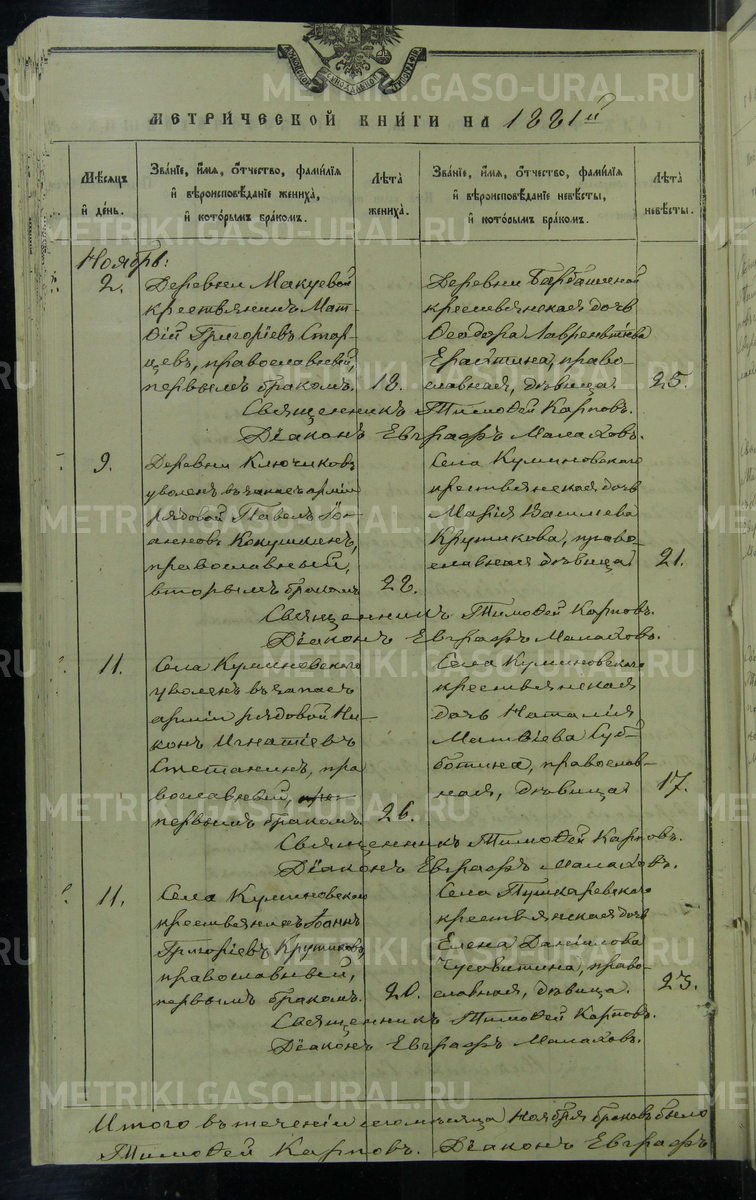 МЕТРИЧЕСКОЙ КНИГИ НА 1881й
Мѣсяцъ и день.
Званіе, имя, отчество, фамилія и вѣроисповѣданіе жениха, и которымъ бракомъ.
Лѣта жениха.
Званіе, имя, отчество, фамилія и вѣроисповѣданіе невѣсты, и которымъ бракомъ.
Лѣта невѣсты.
Ноябрь:
2.
Деревни Макуевой
крестьянинъ Мат-
ѳій Григоріевъ Стар-
цевъ, православный,
первымъ бракомъ. 18.
Деревни
крестьянская дочь
Ѳеодора Лаврентьева
право-
славная, дѣвица 25.
Священникъ Тимоѳей Карповъ.
Діаконъ Евграфъ Малаховъ.
9.
Деревни Ключиковъ
уволен. въ запасъ арміи
рядовой Павелъ Іо-
анновъ Кокушкинъ,
православный,
вторымъ бракомъ 28.
Села Куминовскаго
крестьянская дочь
Марія Васильева
Крутикова, право-
славная дѣвица 21.
Священникъ Тимоѳей Карповъ.
Діаконъ Евграфъ Малаховъ.
11.
Села Куминовскаго
уволенъ въ запасъ
арміи рядовой Ни-
конъ Игнатіевъ
Степанинъ, пра
вославный,
первымъ бракомъ. 26.
Села Куминовскаго
крестьянская
дочь Наталія
Матвіева Суб-
ботина, православ-
ная, дѣвица 17.
Священникъ Тимоѳей Карповъ.
Діаконъ Евграфъ Малаховъ.
11.
Села Куминовскаго
крестьянинъ Іоаннъ
Григоріевъ Крутиковъ,
православный,
первымъ бракомъ. 20.
Села Пушкаревскаго
крестьянская дочь
Елена Даніилова
Чусовитина, право-
славная, дѣвица. 23.
Священникъ Тимоѳей Карповъ.
Діаконъ Евграфъ Малаховъ.
Итого въ теченіи сего мѣсяца Ноября браковъ было
Тимоѳей Карповъ. Діаконъ Евграфъ
METRIKI.GASO-URAL.RU